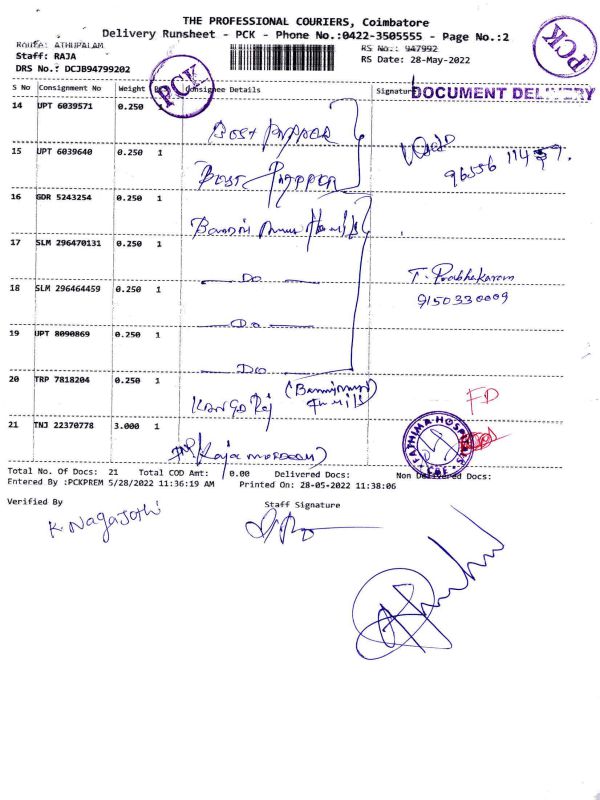 THE PROFESSIONAL COURIERS, Coimbatore
Delivery Runsheet - PCK - Phone No.:0422-3505555 - Page No.:2
Route: ATHUPALAM
RS No.: 947992
Staff: RAJA
RS Date: 28-May-2022
DRS No.: DCJB94799202
PCK
PCK
S No Consignment No Weight Consignee Details Signature
DOCUMENT DELIVERY
14 UPT 6039571 0.250 1
BEST PAPPER
15 UPT 6039640 0.250 1
96556 11457.
BEST PAPPER
16 GDR 5243254 0.250 1
17 SLM 296470131 0.250 1
Do
T. Prabhakaran
18 SLM 296464459 0.250 1
9150330009
Do
19 UPT 8090869 0.250 1
Do
20 TRP 7818204 0.250 1
FD
21 TNJ 22370778 3.000 1
FATHIMA HOSPITAL
CBE
Total No. Of Docs: 21 Total COD Amt: 0.00 Delivered Docs: Non Delivered Docs:
Entered By :PCKPREM 5/28/2022 11:36:19 AM Printed On: 28-05-2022 11:38:06
Verified By Staff Signature
K. Nagajothi